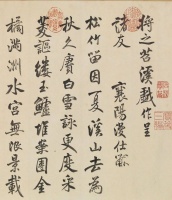 将之苕溪戲作呈
諸友
襄陽漫仕黻
松竹留因夏溪山去為
秋久賡白雪詠更度采
菱謳縷玉鱸堆案團金
橘滿洲水宮無限景載